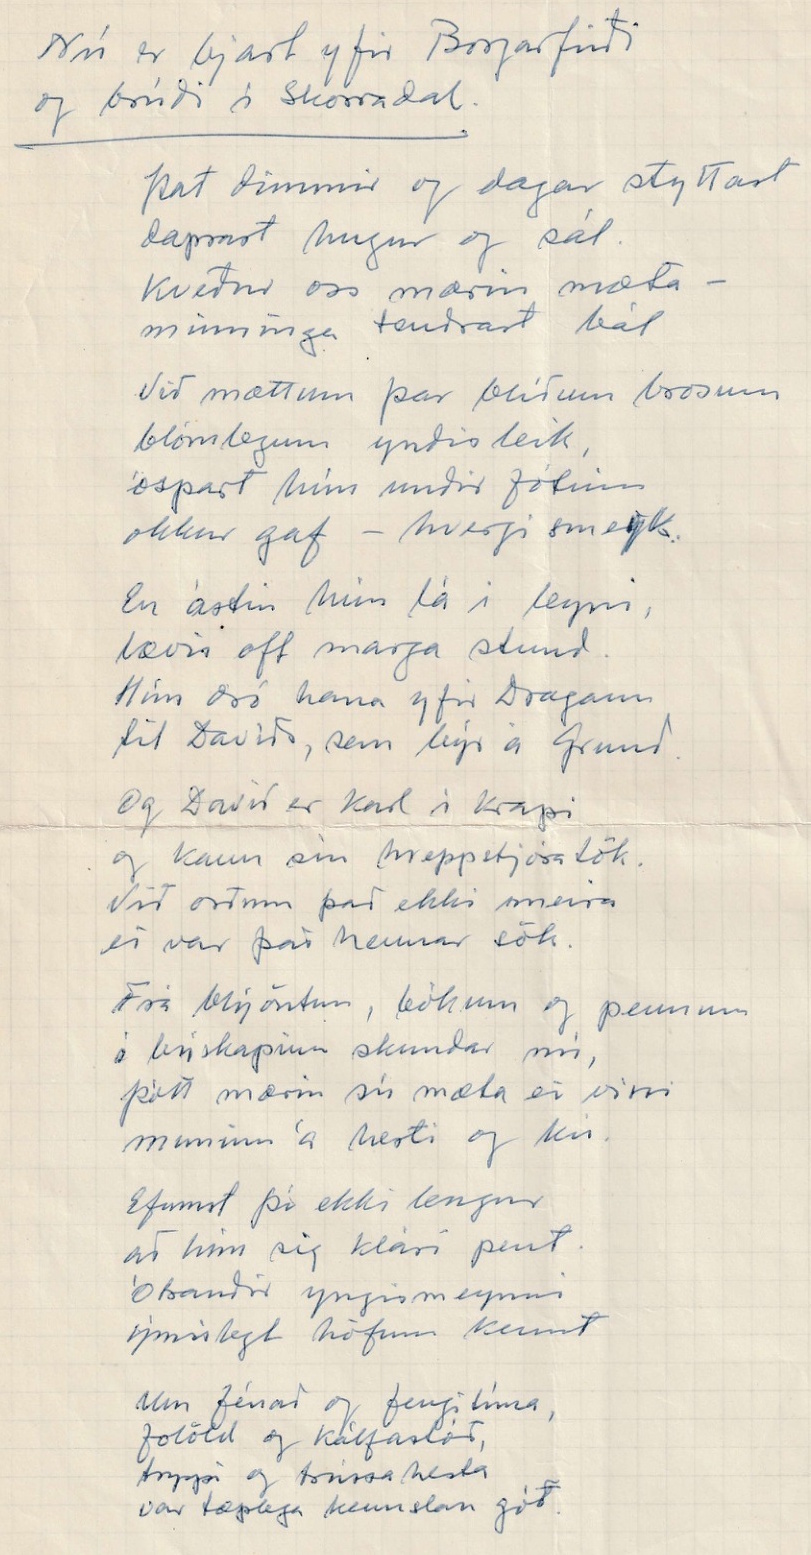 Nú er bjart yfir Borgarfirði
og brúði í Skorradal.
Það dimmir og dagar styttast
daprast hugur og sál.
Kveður oss mærin mæta –
minninga tendrast bál
Við mættum þar blíðum brosum
blómlegum yndisleik,
óspart hún undir fótinn
okkur gaf – hvergi smeyk.
En ástin hún lá í leyni,
lævís oft marga stund.
Hún dró hana yfir Dragann
til Davíðs, sem býr á Grund.
Og Davíð er karl í krapi
og kann sín hreppstjóratök.
Við orðum það ekki meira
ei var það hennar sök.
Frá blýöntum, bókum og pennum
í búskapinn skundar nú,
þótt mærin sú mæta ei vissi
muninn á hesti og kú.
Efumst þó ekki lengur
að hún sig klári pent.
Ótrauðir yngismeynni
ýmislegt höfum kennt
Um fénað og fengitíma,
folöld og kálfastóð,
tryppi og trússahesta
var tæplega kennslan góð.